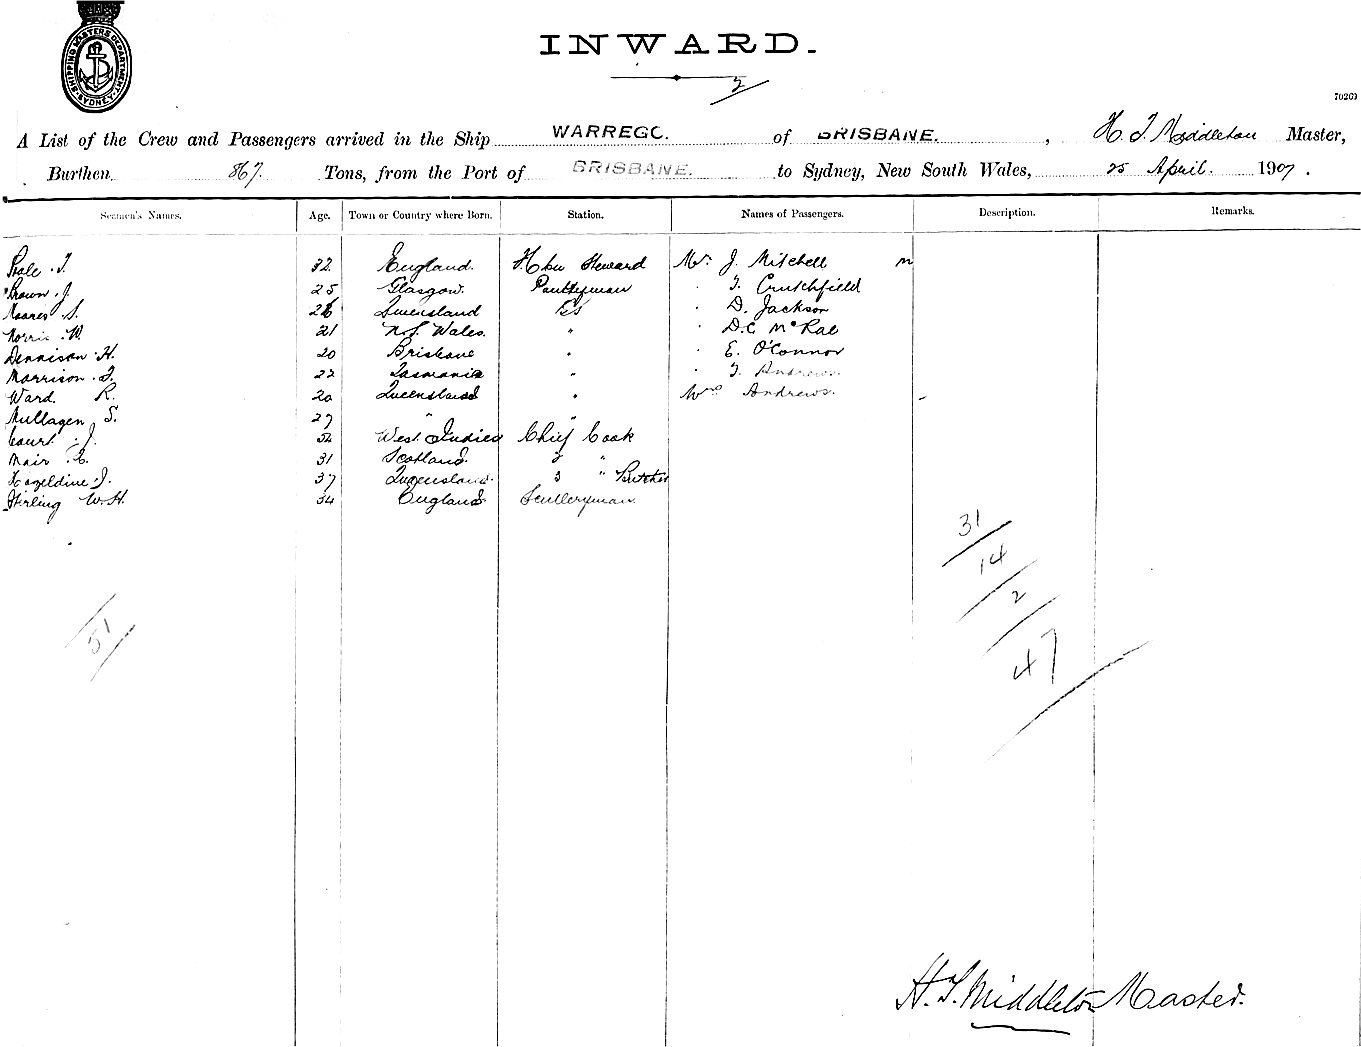 SHIPPING MASTERS DEPARTMENT. SYDNEY
INWARD.
2
70269
A List of the Crew and Passengers arrived in the Ship WARREGO. of BRISBANE. , H. T. Middleton Master,
Burthen 867. Tons, from the Port of BRISBANE. to Sydney, New South Wales, 25 April. 1907.
Seamen's Names. Age. Town or Country where Born. Station. Names of Passengers. Description. Remarks.
32 England. Steward Mr. J. Mitchell m
Brown. J. 25 Glasgow. Pantryman " T. Crutchfield
Moores S. Queensland " D. Jackson
Norris W. 21 N.S. Wales. " " D.C McRae
Dennison H. 20 Brisbane " " E. O'Connor
Morrison. J. 22 Tasmania " " T. Andrews.
Ward. R. 20 Queensland " Mrs Andrews. -
S. 27 " "
Court. J. 52 West Indies Chief Cook
Mair. E. 31 Scotland. 2 "
Hazeldine. J. 37 Queensland. 3 " Butcher
Stirling W.H. 34 England Sculleryman
31
14
2
51
47
H. T. Middleton Master.